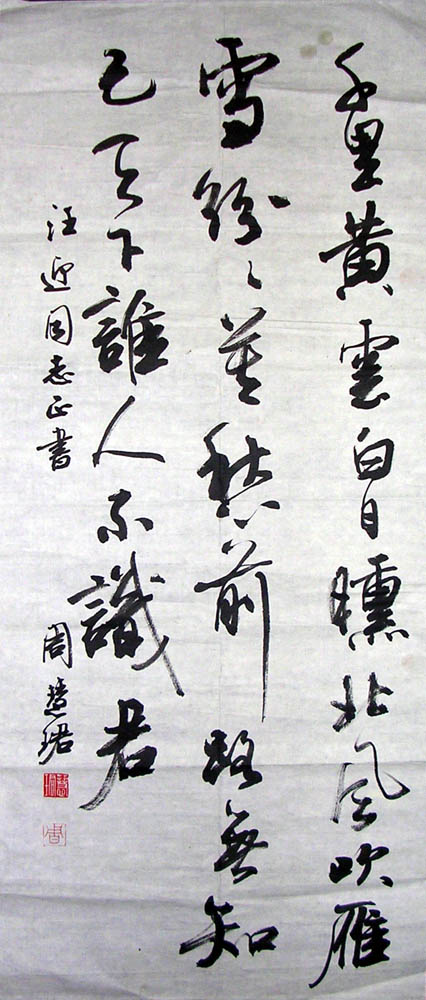 千里黄雲白日曛北風吹雁
雪紛〻莫愁前路無知
己天下誰人不識君
汪迎同志正書
周慧珺